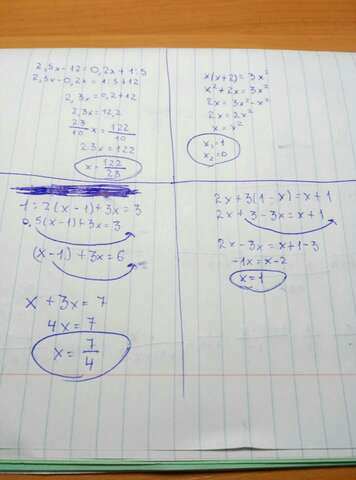 2,5x-12=0,2x+1:5
2,5x-0,2x=1:5+12
2,3x=0,2+12
2,3x=12,2
23/10 x=122/10
23x=122
x=122/23
x(x+2)=3x²
x²+2x=3x²
2x=3x²-x²
2x=2x²
x=x²
x₁=1
x₂=0
1:2(x-1)+3x=3
0,5(x-1)+3x=3
(x-1)+3x=6
x+3x=7
4x=7
x=7/4
2x+3(1-x)=x+1
2x+3-3x=x+1
2x-3x=x+1-3
-1x=x-2
x=1